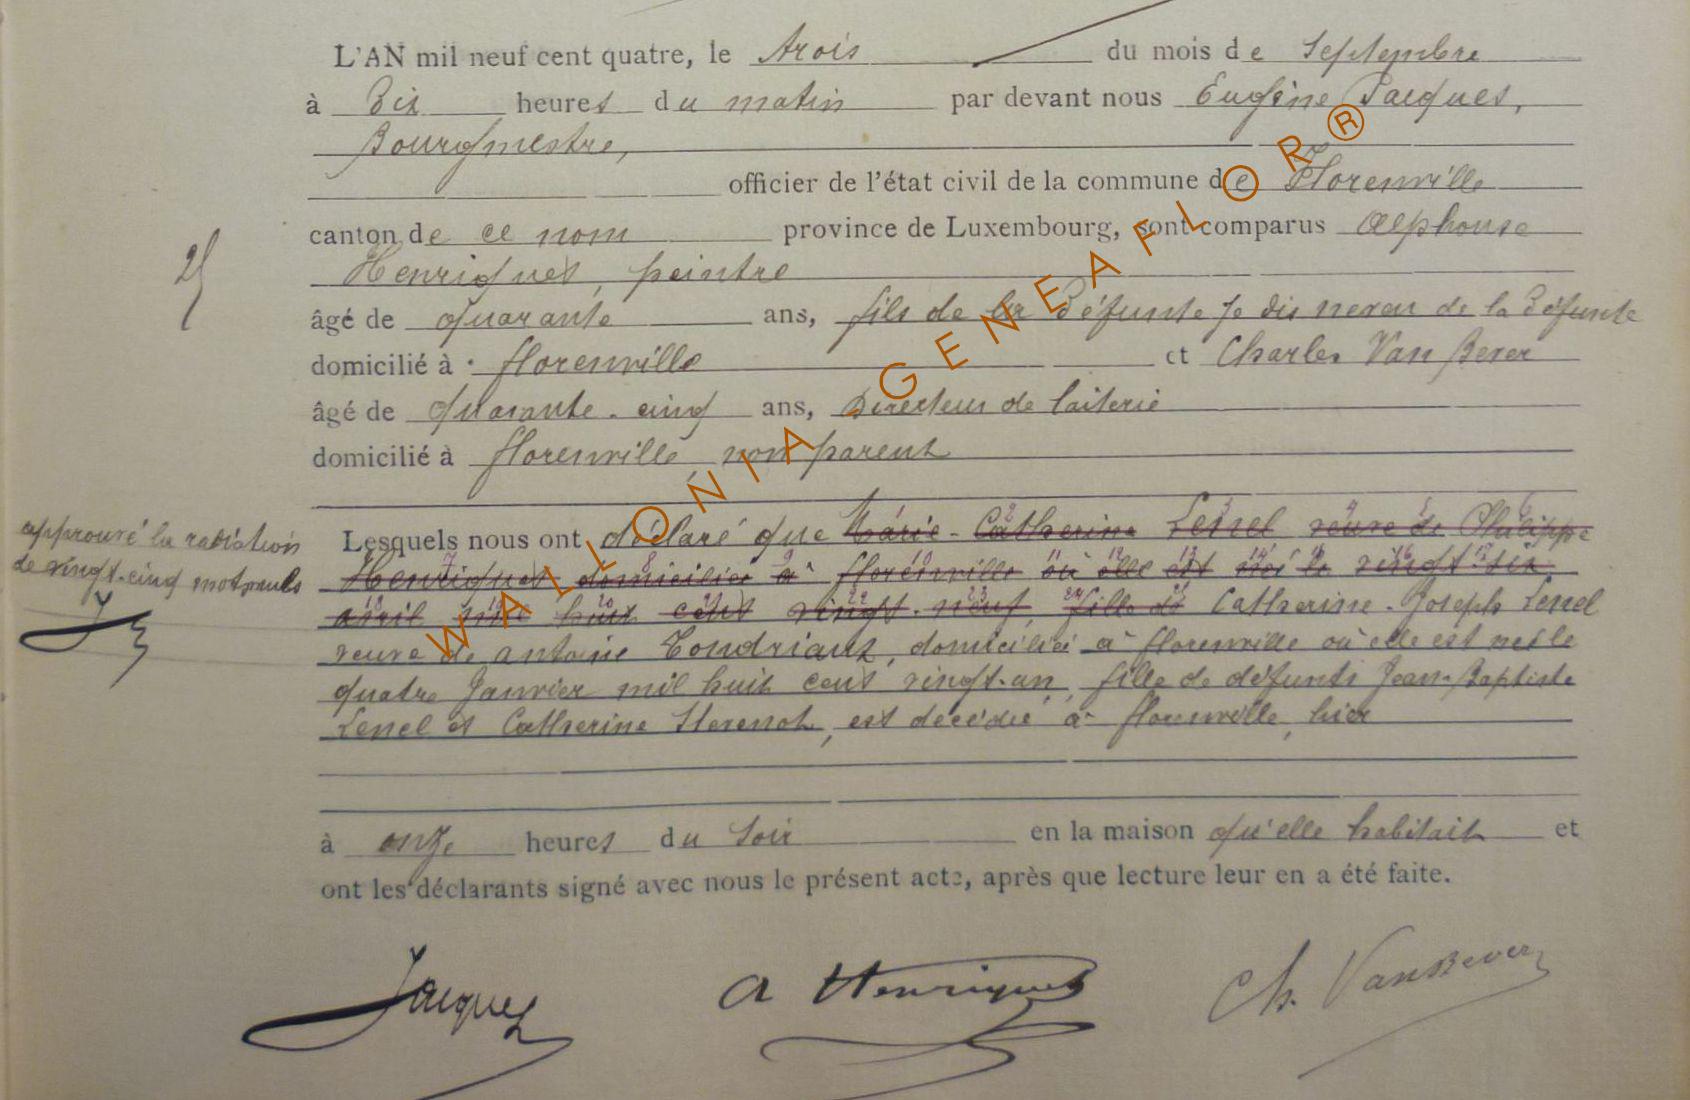 L'AN mil neuf cent quatre, le trois du mois de Septembre
à Dix heures du matin par devant nous Eugène Jacques,
Bourgmestre,
officier de l'état civil de la commune de Florenville
canton de ce nom province de Luxembourg, sont comparus Alphonse
Henriquet, peintre
âgé de quarante ans, fils de la Défunte Je dis neveu de la Défunte
domicilié à florenville et Charles Van Bever
âgé de quarante-cinq ans, Directeur de laiterie
domicilié à florenville, non parent
Lesquels nous ont déclaré que Marie-Catherine Lenel veuve de Philippe
Henriquet domiciliée à florenville où elle est née le vingt-six
avril mil huit cent vingt-neuf, fille de Catherine-Joseph Lenel
veuve de antoine Tondriaux, domiciliée à florenville où elle est née le
quatre Janvier mil huit cent vingt-un, fille de défunts Jean-Baptiste
Lenel et Catherine, est décédée à florenville, hier
à onze heures du soir en la maison qu'elle habitait et
ont les déclarants signé avec nous le présent acte, après que lecture leur en a été faite.
25
approuvé la radiation
de vingt-cinq mots nuls
J
Jacques A Henriquet Ch. VanBever
WALLONIA GENEAFLOR®